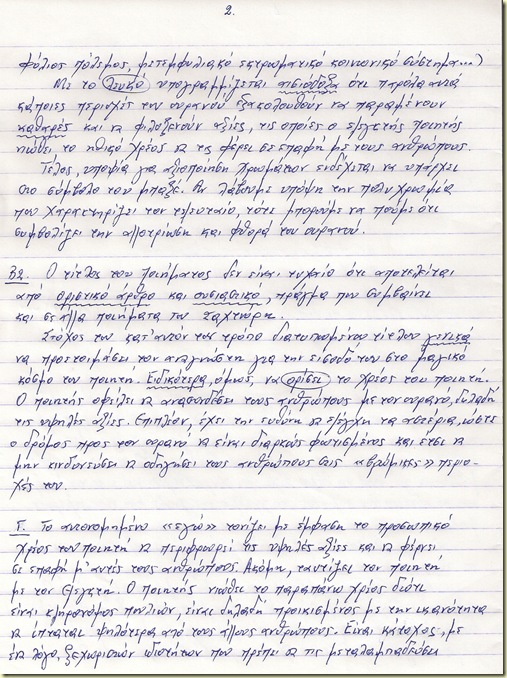 2.
φύλιος πόλεμος, μετεμφυλιακό εκτρωματικό κοινωνικό σύστημα...)
Με το λευκό υπογραμμίζεται αισιόδοξα ότι παρόλα αυτά
κάποιες περιοχές του ουρανού εξακολουθούν να παραμένουν
καθαρές και να φιλοξενούν αξίες, τις οποίες ο ελεγκτής ποιητής
νιώθει το ηθικό χρέος να τις φέρει σε επαφή με τους ανθρώπους.
Τέλος, υποψία για αξιοποίηση χρωμάτων ενδέχεται να υπάρχει
στο σύμβολο του μπαξέ. Αν λάβουμε υπόψη την πολυχρωμία
που χαρακτηρίζει τον τελευταίο, τότε μπορούμε να πούμε ότι
συμβολίζει την αλλοτρίωση και φθορά του ουρανού.
Β2. Ο τίτλος του ποιήματος δεν είναι τυχαίο ότι αποτελείται
από οριστικό άρθρο και ουσιαστικό, πράγμα που συμβαίνει
και σε άλλα ποιήματα του Σαχτούρη.
Στόχος του κατ' αυτόν τον τρόπο διατυπωμένου τίτλου γενικά
να προετοιμάσει τον αναγνώστη για την είσοδό του στο μαγικό
κόσμο του ποιητή. Ειδικότερα, όμως, να ορίσει το χρέος του ποιητή.
Ο ποιητής οφείλει να ανασυνδέσει τους ανθρώπους με τον ουρανό, δηλαδή
τις υψηλές αξίες. Επιπλέον, έχει την ευθύνη να ελέγχει τα αστέρια, ώστε
ο δρόμος προς τον ουρανό να είναι διαρκώς φωτισμένος και έτσι να
μην κινδυνεύσει να οδηγήσει τους ανθρώπους στις «βρώμικες» περιο-
χές του.
Γ. Το αυτονομημένο «εγώ» τονίζει με έμφαση το προσωπικό
χρέος του ποιητή να περιφρουρεί τις υψηλές αξίες και να φέρνει
σε επαφή μ' αυτές τους ανθρώπους. Ακόμη, ταυτίζει τον ποιητή
με τον ελεγκτή. Ο ποιητής νιώθει το παραπάνω χρέος διότι
είναι κληρονόμος πουλιών, είναι δηλαδή προικισμένος με την ικανότητα
να ίπταται ψηλότερα από τους άλλους ανθρώπους. Είναι κάτοχος, με
ένα λόγο, ξεχωριστών ιδιοτήτων που πρέπει να τις μεταλαμπαδεύσει